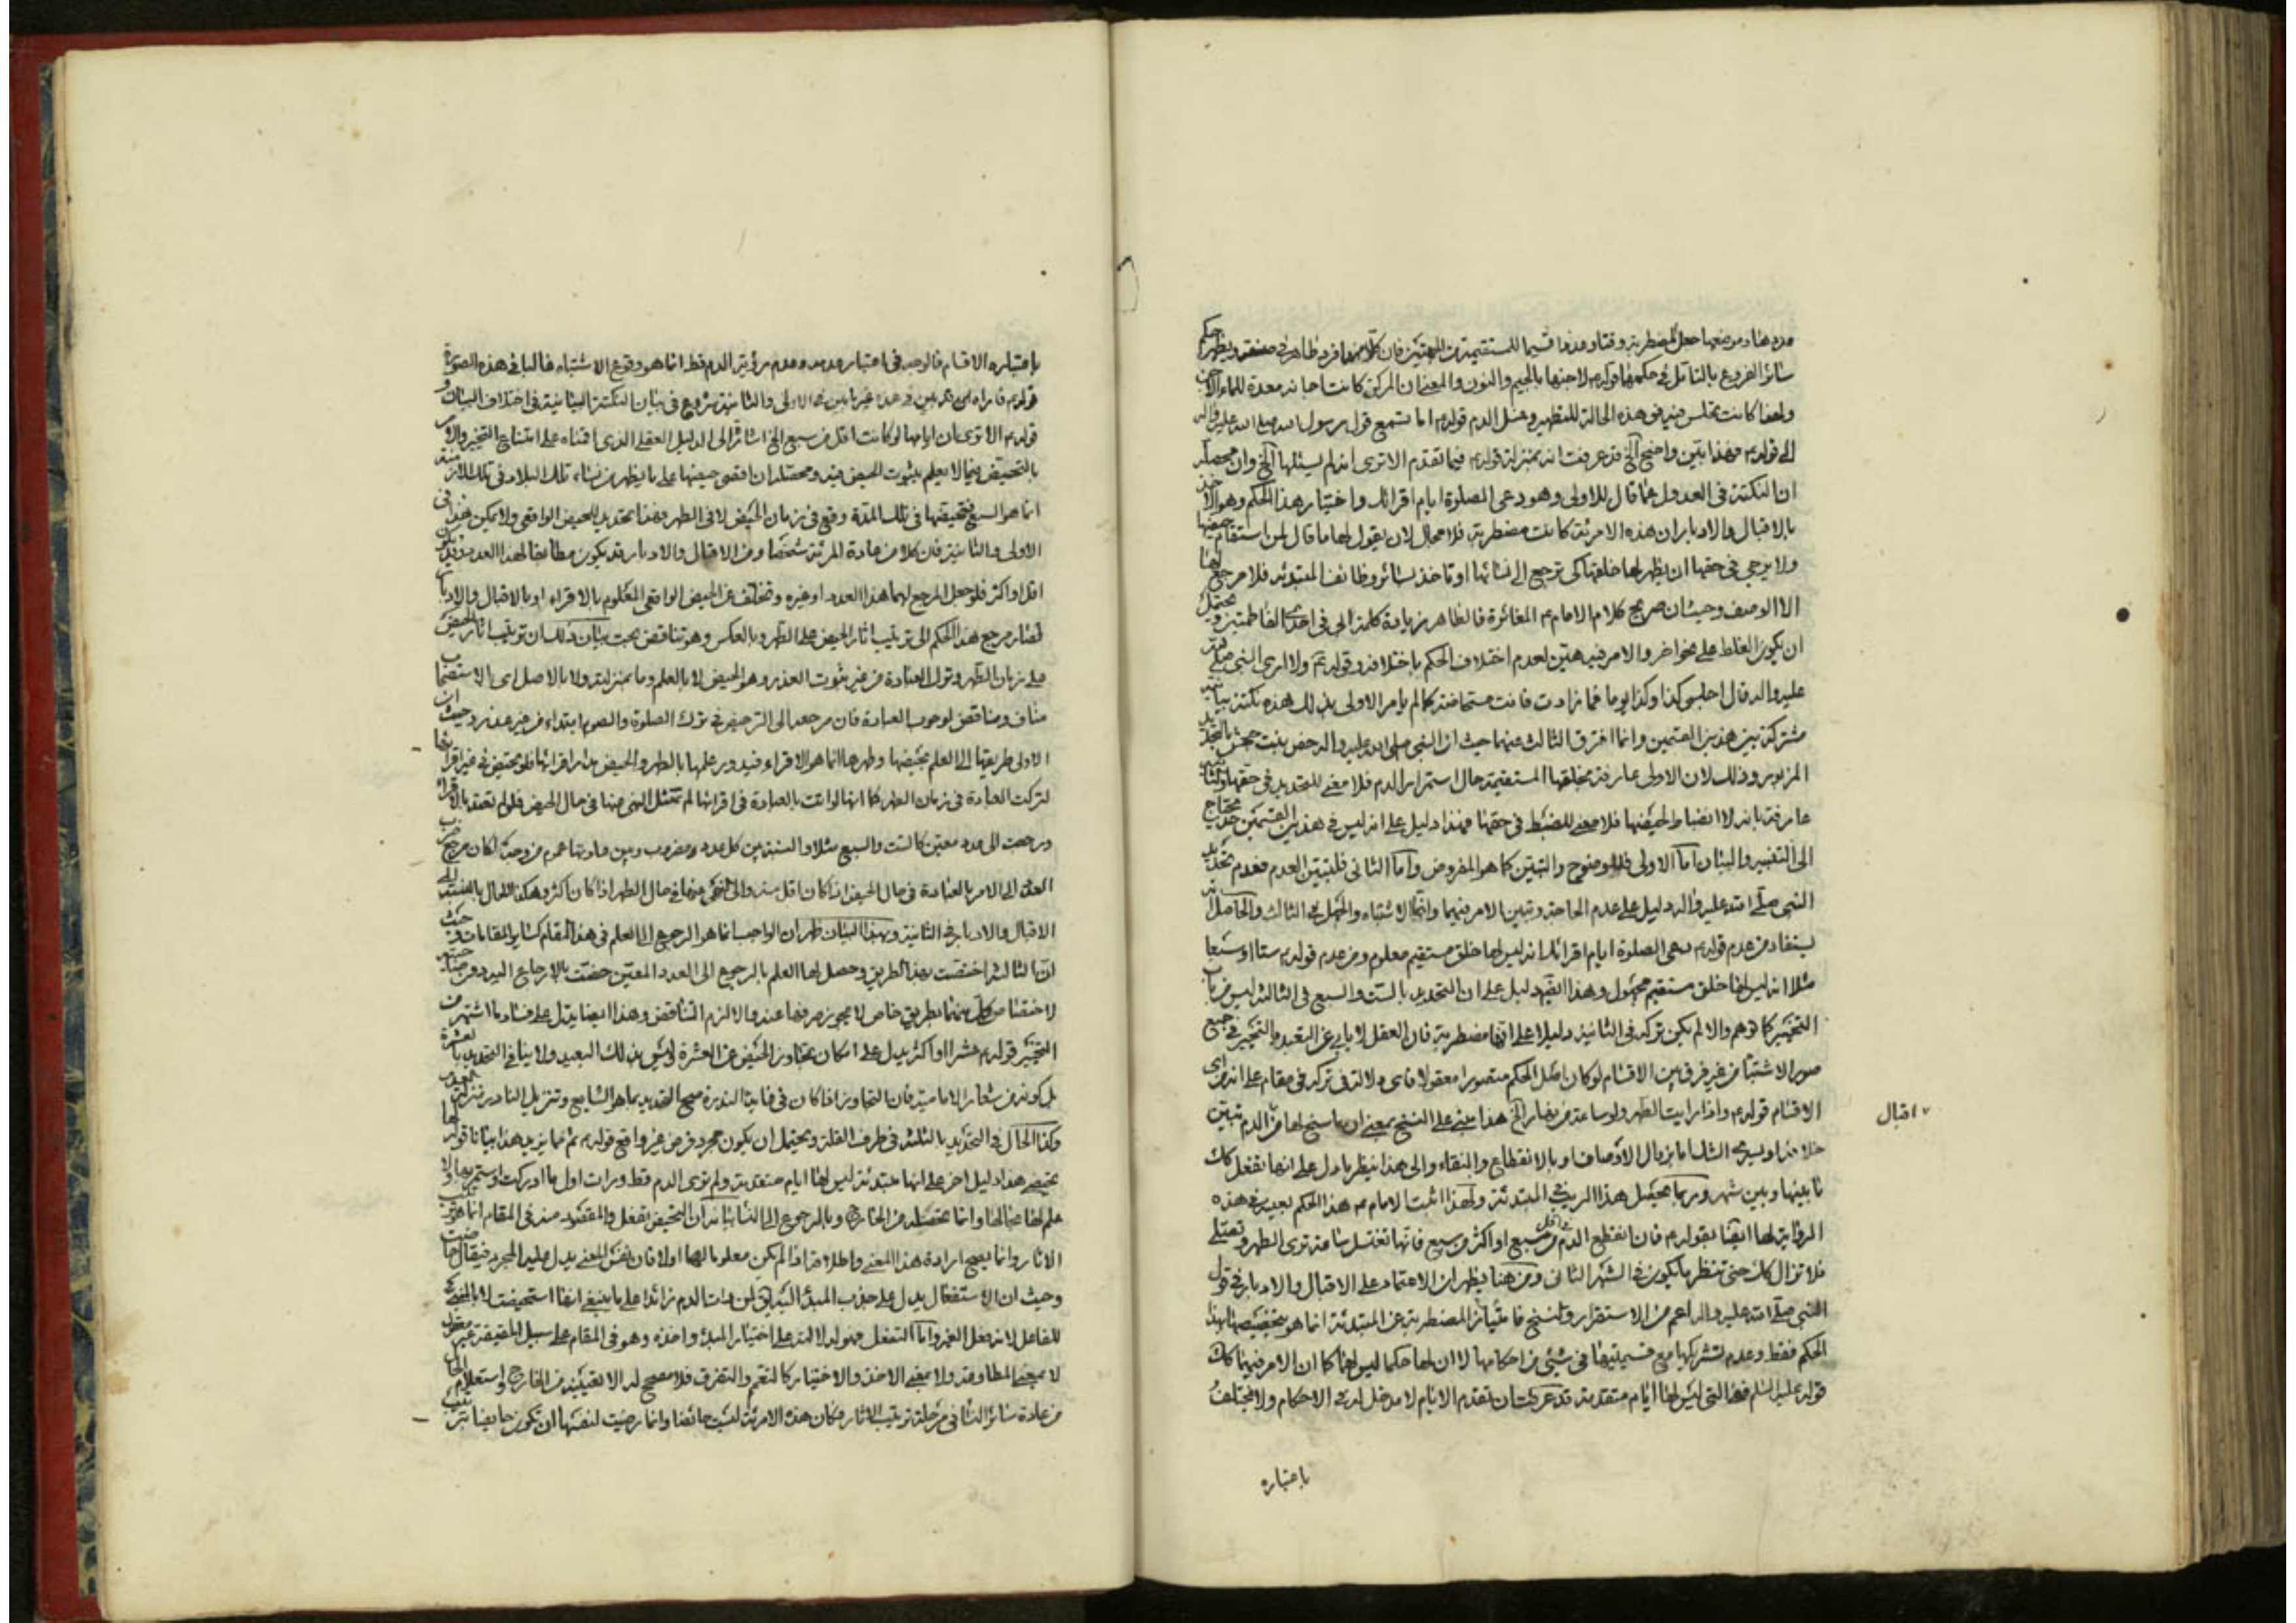 سائر الفروع بالتأمل في حكمهما قوله لاجنها بالجيم والنون والمعنى ان المركن كانت اجانة معدة للماء
ولهذا كانت تجلس فيه في هذه الحالة للتطهير وغسل الدم قوله اما تسمع قول رسول الله صلى الله عليه وآله
الى قوله فهذا بين واضح الخ قد عرفت انه بمنزلة قوله فيما تقدم الا ترى انه لم يسئلها الخ وان محصله
ان النكتة في العدول عما قال للاولى وهو دعى الصلوة ايام اقرائك واختيار هذا الحكم وهو الاخذ
بالاقبال والادبار ان هذه الامرئة كانت مضطربة فلا مجال لان يقول لها ما قال لمن استقام حيضها
ولا يرجى في حقها ان يظهر لها خلقها كي ترجع الى نسائها او تاخذ بسائر وظائف المبتدئه فلا مرجع لها
الا الوصف وحيث ان صريح كلام الامام المغائرة فالظاهر زيادة كلمة ابى في احدى الفاطمتين ويحتمل
ان يكون الغلط على نحو اخر والامر فيه هين لعدم اختلاف الحكم باختلافه وقوله ولا ارى النبى صلى الله
عليه واله قال اجلسى كذا وكذا يوما فما زادت فانت مستحاضة كما لم يامر الاولى بذلك هذه نكتة بيانيه
مشتركة بين هذين القسمين وانما افترق الثالث عنهما حيث ان النبى صلى الله عليه واله خص بنت جحش بالتحديد
المزبور وذلك لان الاولى عارفة بخلقها المستقيمة حال استمرار الدم فلا معنى للتحديد في حقها والثانيه
عارفة بانه لا انضباط لحيضها فلا معنى للضبط في حقها فهذا دليل على انه ليس في هذين القسمين حد يحتاج
الى التفسير والبيان اما الاولى فللوضوح والتبين كما هو المفروض واما الثانى فلتبين العدم فعدم تحديد
النبى صلى الله عليه واله دليل على عدم الحاجة وتبين الامر فيهما وانما الاشتباه والجهل في الثالث والحاصل انه
يستفاد من عدم قوله دعى الصلوة ايام اقرائك انه ليس لها خلق مستقيم معلوم ومن عدم قوله ستا او سبعا
مثلا انه ليس لها خلق مستقيم مجهول وهذا ايضا دليل على ان التحديد بالست والسبع في الثالثة ليس من باب
التخيير كما توهم والا لم يكن تركه في الثانية دليلا على انها مضطربة فان العقل لا يابى عن التعبد والتخيير في جميع
صور الاشتباه من غير فرق بين الاقسام لو كان اصل الحكم متصورا معقولا فاى دلالة في تركه في مقام على انه من اى
الاقسام قوله واذا رايت الطهر ولو ساعة من نهار الخ هذا مبنى على النسخ بمعنى ان ما سنح لها من الدم تبين
اقبال
ما بينها وبين شهر وربما يحصل هذا الريب في المبتدئة ولهذا اثبت الامام هذا الحكم بعينه في هذه
الرواية لها ايضا بقوله فان انقطع الدم في اقل من سبع او اكثر من سبع فانها تغتسل ساعة ترى الطهر وتصلى
فلا تزال كك حتى تنظر ما يكون في الشهر الثانى ومن هنا يظهر ان الاعتماد على الاقبال والادبار في قول
النبى صلى الله عليه واله اعم من الاستقرار والنسخ فامتياز المضطربة عن المبتدئة انما هو بتخصيصها بهذا
الحكم فقط وعدم تشريكها مع قسيمتيها في شئ من احكامها لا ان لها حكما ليس لهما كما ان الامر فيهما كك
قوله عليه السلم فهذه التى ليس لها ايام متقدمة قد عرفت ان تقدم الايام لا مدخل له في الاحكام ولا تختلف
باعتباره
باعتباره الاقسام فالوجه في اعتبار عدمه وعدم رؤية الدم قط انما هو وقوع الاشتباه غالبا في هذه الصورة
قوله الا ترى ان ايامها لو كانت اقل من سبع الخ اشارة الى الدليل العقلى الذى اقمناه على امتناع التخيير والامر
بالتحيض فيما لا يعلم بثبوت الحيض فيه ومحصله ان اقصى حيضها على ما يظهر من نساء تلك البلاد في تلك الازمنة
انما هو السبع فتحيضها في تلك المدة وقع في زمان الحيض لا في الطهر فهذا تحديد للحيض الواقعى ولا يمكن هذا في
الاولى والثانية فان كلا من عادة المرئة شخصا ومن الاقبال والادبار قد يكون مطابقا لهذا العدد وقد يكون
اقل او اكثر فلو جعل المرجع لهما هذا العدد او غيره وتخلف عن الحيض الواقعى المعلوم بالاقراء او بالاقبال والادبار
لصار مرجع هذا الحكم الى ترتيب اثار الحيض على الطهر وبالعكس وهو تناقض بحت بيان ذلك ان ترتيب اثار الحيض
على زمان الطهر وترك العبادة من غير ثبوت العذر وهو الحيض لا بالعلم وما بمنزلته ولا بالاصل اى الاستصحاب
مناف ومناقض لوجوب العبادة فان مرجعه الى الترخيص في ترك الصلوة والصوم ابتداء من غير عذر وحيث ان
الاولى طريقها الى العلم بحيضها وطهرها انما هو الاقراء فيدور علمها بالطهر والحيض مدار اقرائها فلو تحيض في غير اقرائها
لتركت العبادة في زمان الطهر كما انها لو اتت بالعبادة في اقرائها لم تمتثل النهى عنها في حال الحيض فلو لم تعتد بالاقراء
ورجعت الى عدد معين كالست والسبع مثلا والنسبة بين كل عدد مفروض وبين عادتها عموم من وجه لكان مرجع ضرب
العدد الى الامر بالعبادة في حال الحيض اذا كان اقل منه والى النهى عنها في حال الطهر اذا كان اكثر وهكذا الحال بالنسبة الى
الاقبال والادبار في الثانية وبهذا البيان ظهر ان الواجب انما هو الرجوع الى العلم في هذا المقام كسائر المقامات وحيث
ان الثالثة اختصت بهذا الطريق وحصل لها العلم بالرجوع الى العدد المعين خصت بالارجاع اليه
لاختصاص كل منهما بطريق خاص لا يجوز صرفها عنه والا لزم التناقض وهذا ايضا يدل على فساد ما اشتهر من
التخيير قوله عشرا او اكثر يدل على امكان تجاوز الحيض عن العشرة وليس بذلك البعيد ولا ينافى التحديد بالعشرة
بل كونه من شعار الامامية فان التجاوز اذا كان في غاية الندرة صح التحديد بما هو الشايع وتنزيل النادر منزلة المعدوم
وكذا الحال في التحديد بالثلث في طرف القلة ويحتمل ان يكون مجرد فرض غير واقع قوله ثم مما يزيد هذا بيانا قوله لها
تحيضى هذا دليل اخر على انها مبتدئة ليس لها ايام متقدمة ولم ترى الدم قط ورات اول ما ادركت واستمر بها ولا
علم لها بحالها وانما تحصله من الخارج وبالرجوع الى النساء
الاثار وانما يصح ارادة هذا المعنى واطلاقه اذا لم يكن معلوما لها اولا فان نفس المعنى يدل عليه المجرد فيقال حاضت
وحيث ان الاستفعال يدل على جذب المبدء اليه
للفاعل لانه فعل الغير واما التفعل فمدلوله الدلالة على اختيار المبدء واخذه وهو في المقام على سبيل الحقيقة غير معقول
لا بمعنى المطاوعة ولا بمعنى الاخذ والاختيار كالتعمم والتصرف فلا مصحح له الا التعيين من الخارج واستعلام الحال
من عادة سائر النساء في مرحلة ترتيب الاثار فكان هذه الامرئة ليست حائضا وانما رضيت لنفسها ان تكون حايضا بترتيب